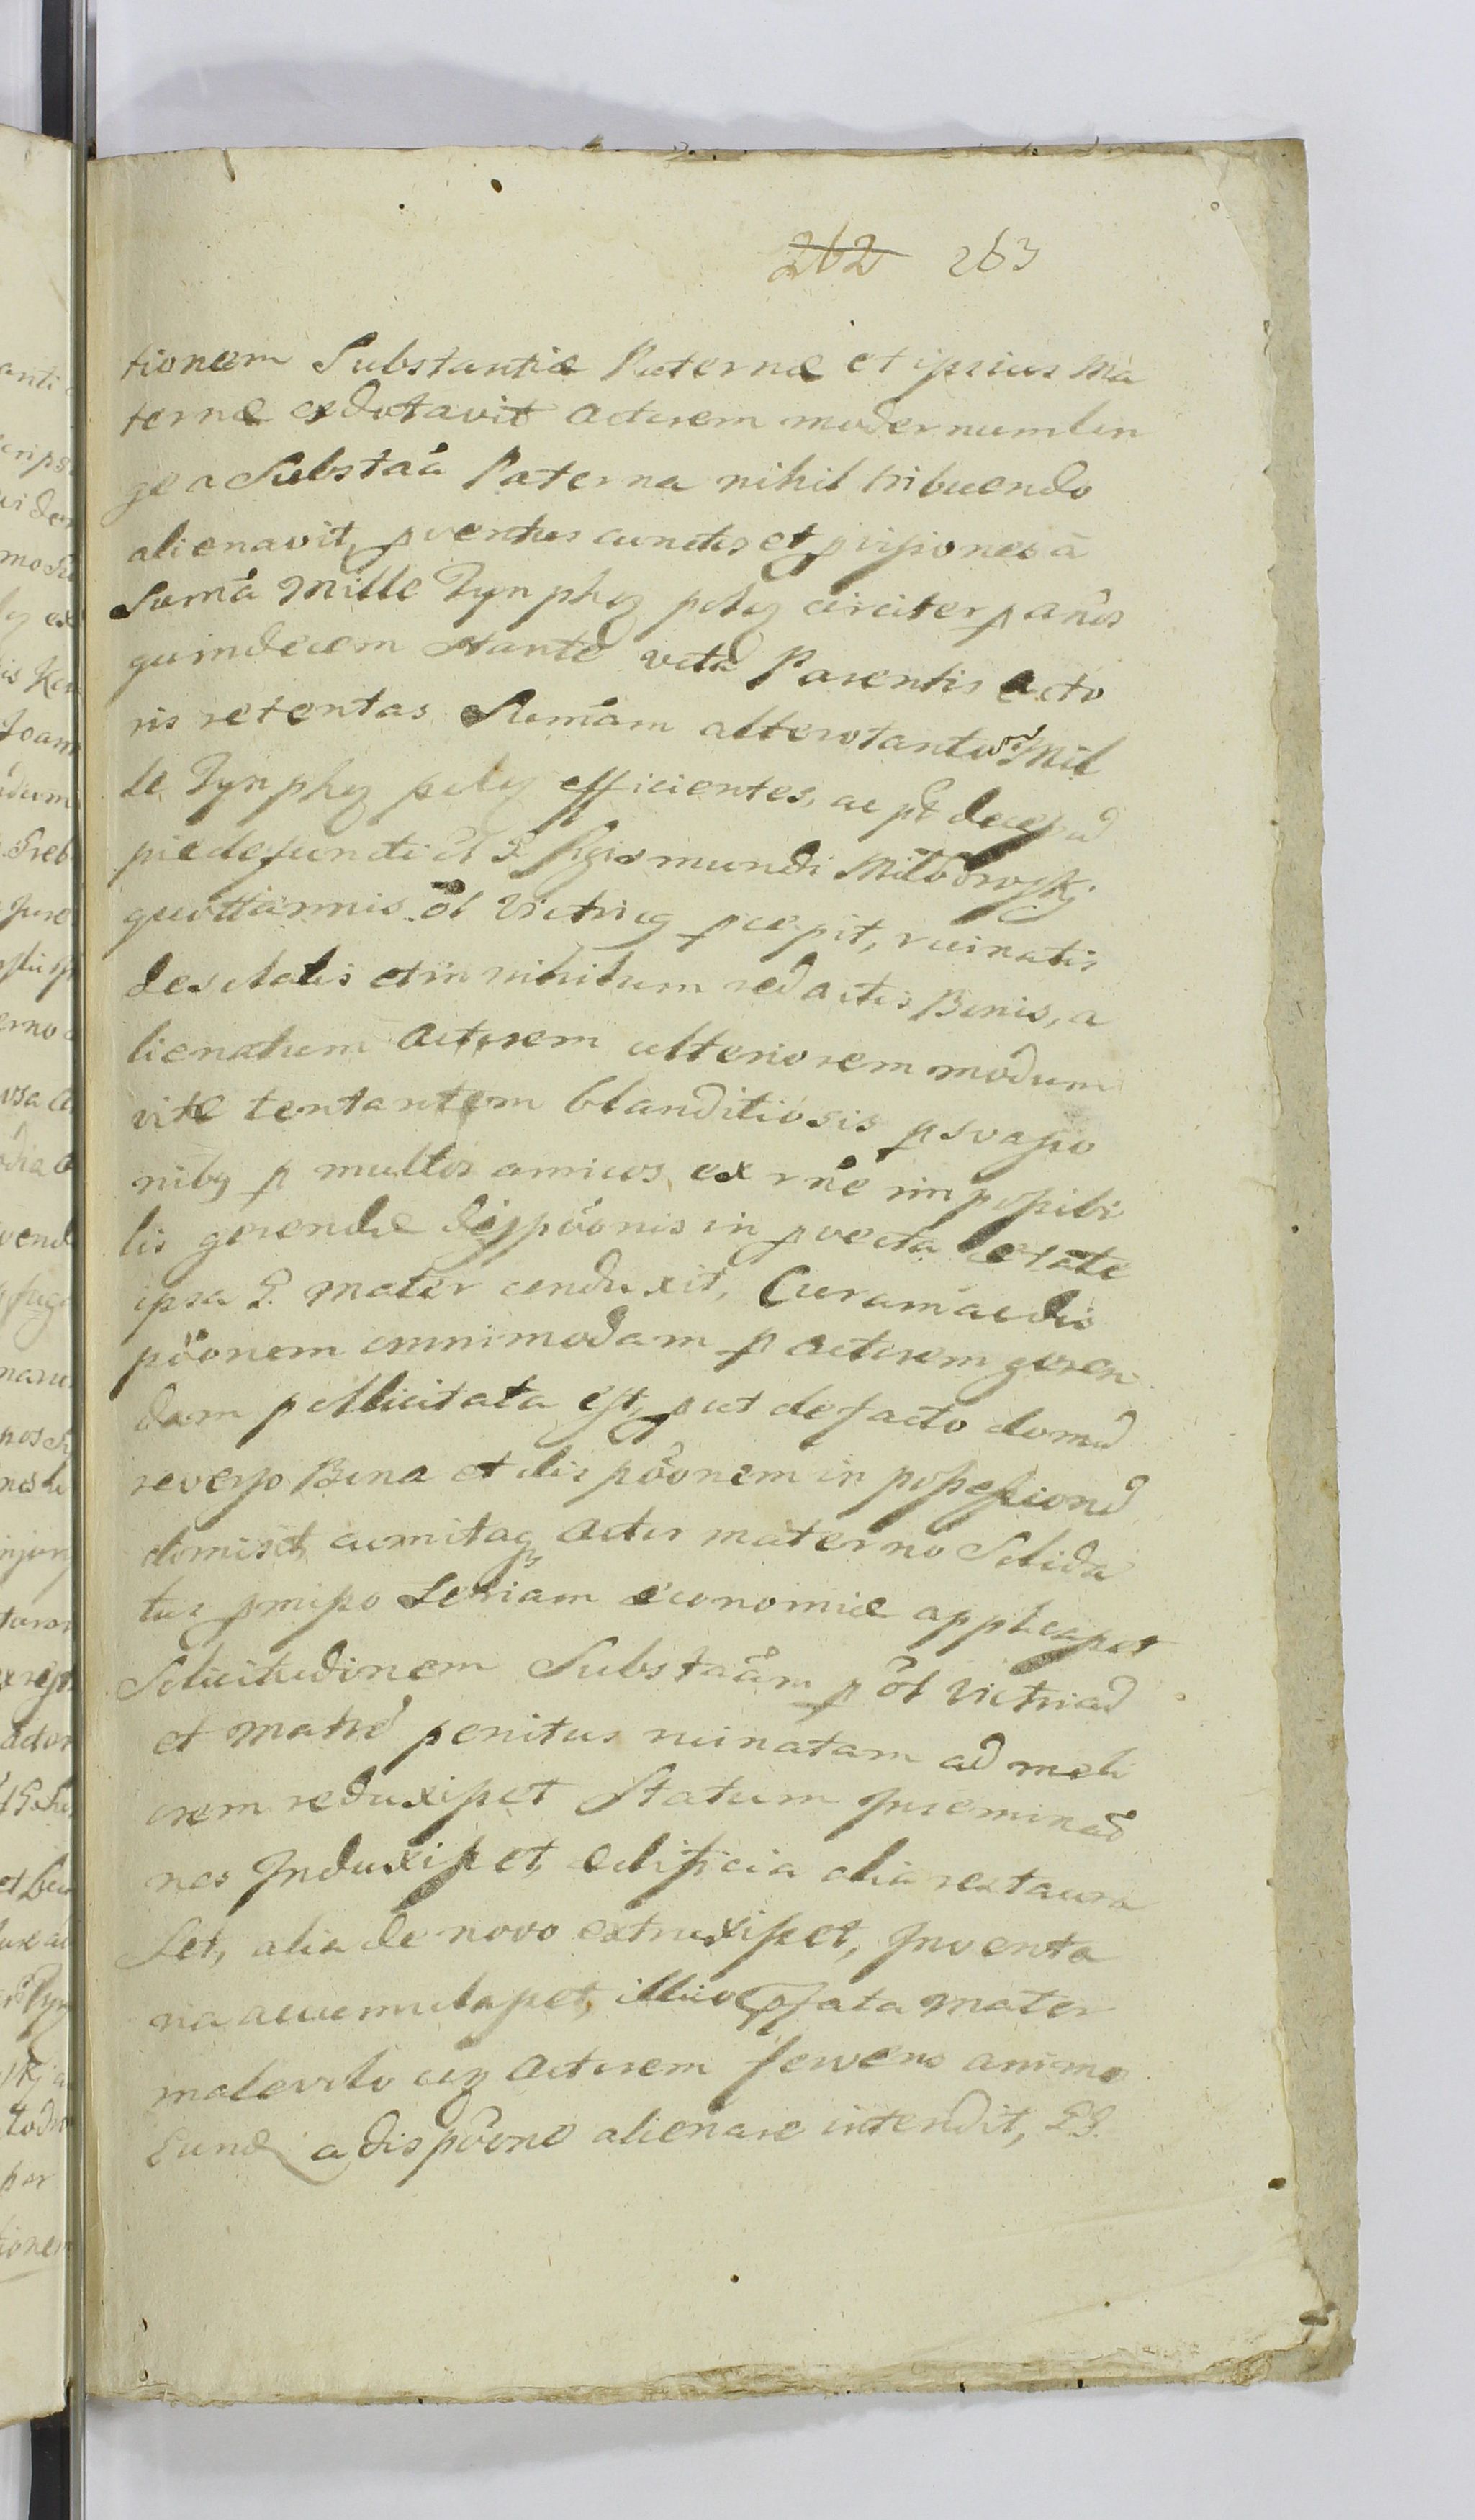 262 263
tionem Substantiæ Paternæ et ipsius Ma
ternæ exdotavit Actorem modernum lon
ge a Substaã Paterna nihil tribuendo
alienavit, pventus cunctos et pvisiones ã
Sumã Mille Tynphoȝ poloȝ circiter p años
quindecem stante vita Parentis acto
ris retentas Sumam alterotantoȝ Mil
le Tynphoȝ poloȝ efficientes, ac pt decessũ
piedefuncti Gȝ Sigismundi Miłborȝskj
quottannis ol Victriȝ pcepit, ruinatis
desolatis et in nihilum redactis Bonis, a
lienatum Actorem ulteriorem modum
vitæ tentantem blanditiosis psvasio
nibȝ p multos amicos, ex rñe impossibi
lis gerendæ disppoonis in pvecta ætate
ipsa G. Mater conduxit, Curam ac dis
pöonem omnimodam p Actorem geren
dam pollicitata est, put defacto domũ
reverso Bona et dispöonem in possessionẽ
domisit, cumitaqȝ Actor materno Solida
tus pmisso Seriam œconomiæ applicasset
Solicitudinem Substaãm p ol Victriaȝ
et Matrẽ penitus ruinatam ad meli
orem reduxisset Statum Inseminaõ
nes Induxisset, ædificia alia restaura
Set, alia de novo extruxisset, Inventa
ria accumulasset, illico pfata Mater
malevolo ergȝ Actorem fervens animo
Eundȝ a dispöone alienare intendit, GG.